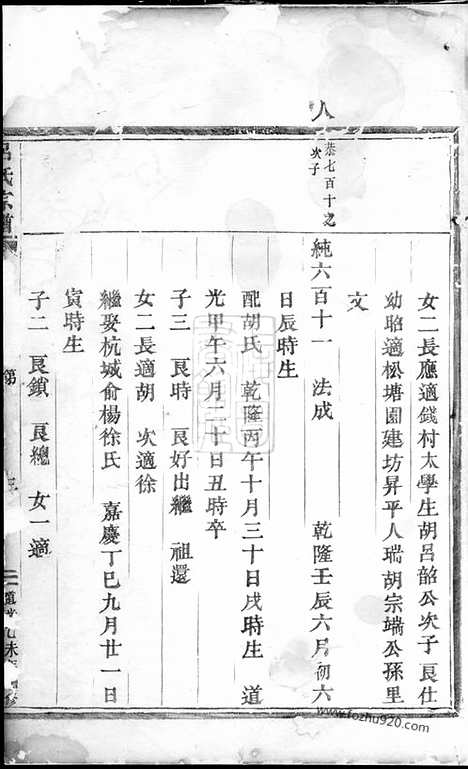 女二長應適錢村太學生胡呂韶公次子良仕
幼昭適松塘園建坊昇平人瑞胡宗端公孫里
文
恭七百十之
次子
純六百十一 法成 乾隆壬辰六月初六
日辰時生
配胡氏 乾隆丙午十月三十日戌時生 道
光甲午六月二十日丑時卒
子三 良時 良好出繼 祖還
女二長適胡 次適徐
繼娶杭城俞楊徐氏 嘉慶丁巳九月廿一日
寅時生
子二 良鎖 良總 女一適
呂氏宗譜
www.fozhu920.com